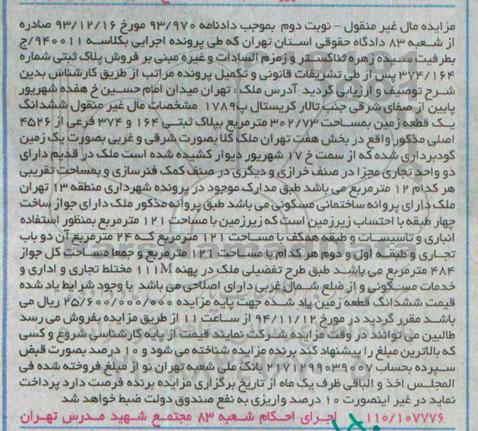 مزایده مال غیر منقول - نوبت دوم بموجب دادنامه ۹۳/۹۷۰ مورخ ۹۳/۱۲/۱۶ صادره
از شعبه ۸۳ دادگاه حقوقی استان تهران که طی پرونده اجرایی بکلاسه ۹۴۰۰۱۱/ج
بطرفیت سیده زهره ثناکستر و زمزم السادات و غیره مبنی بر فروش پلاک ثبتی شماره
۳۷۴/۱۶۴ پس از طی تشریفات قانونی و تکمیل پرونده مراتب از طریق کارشناس بدین
شرح توصیف و ارزیابی گردید آدرس ملک : تهران میدان امام حسین خ هفده شهریور
پایین از صفای شرقی جنب تالار کریستال پ۱۷۸۹ مشخصات مال غیر منقول ششدانگ
یک قطعه زمین بمساحت ۳۰۲/۷۳ مترمربع بپلاک ثبتی ۱۶۴ و ۳۷۴ فرعی از ۴۵۲۶
اصلی مذکور واقع در بخش هفت تهران ملک کلا بصورت شرقی و غربی بصورت یک زمین
گودبرداری شده که از سمت خ ۱۷ شهریور دیوار کشیده شده است ملک در قدیم دارای
دو واحد تجاری مجزا در صنف خرازی و دیگری در صنف کمک فنرسازی و بمساحت تقریبی
هر کدام ۱۲ مترمربع می باشد طبق مدارک موجود در پرونده شهرداری منطقه ۱۳ تهران
ملک دارای پروانه ساختمانی مسکونی می باشد طبق پروانه مذکور ملک دارای جواز ساخت
چهار طبقه با احتساب زیرزمین است که زیرزمین با مساحت ۱۲۱ مترمربع بمنظور استفاده
انباری و تاسیسات و طبقه همکف با مساحت ۱۲۱ مترمربع که ۲۴ مترمربع آن دو باب
تجاری و طبقه اول و دوم هر کدام با مساحت ۱۲۱ مترمربع و جمعا مساحت کل جواز
۴۸۴ مترمربع می باشد طبق طرح تفضیلی ملک در پهنه M۱۱۱ مختلط تجاری و اداری و
خدمات مسکونی و از ضلع شمال غربی دارای اصلاحی می باشد با وجود شرایط یاد شده
قیمت ششدانگ قطعه زمین یاد شده جهت پایه مزایده ۲۵/۶۰۰/۰۰۰/۰۰۰ ریال می
باشد مقرر گردید در مورخ ۹۴/۱۱/۱۲ از ساعت ۱۱ از طریق مزایده بفروش می رسد
طالبین می توانند در وقت مزایده شرکت نمایند قیمت از پایه کارشناسی شروع و کسی
که بالاترین مبلغ را پیشنهاد کند برنده مزایده شناخته می شود و ۱۰ درصد بصورت قبض
سپرده بحساب ۲۱۷۱۲۹۹۰۳۹۰۰۷ بانک ملی شعبه تهران نو از مبلغ فروخته شده فی
المجلس اخذ و الباقی ظرف یک ماه از تاریخ برگزاری مزایده برنده فرصت دارد پرداخت
نماید در غیر اینصورت ۱۰ درصد واریزی به نفع صندوق دولت ضبط خواهد شد
۱۱۰/۱۰۷۷۷۶ اجرای احکام شعبه ۸۳ مجتمع شهید مدرس تهران